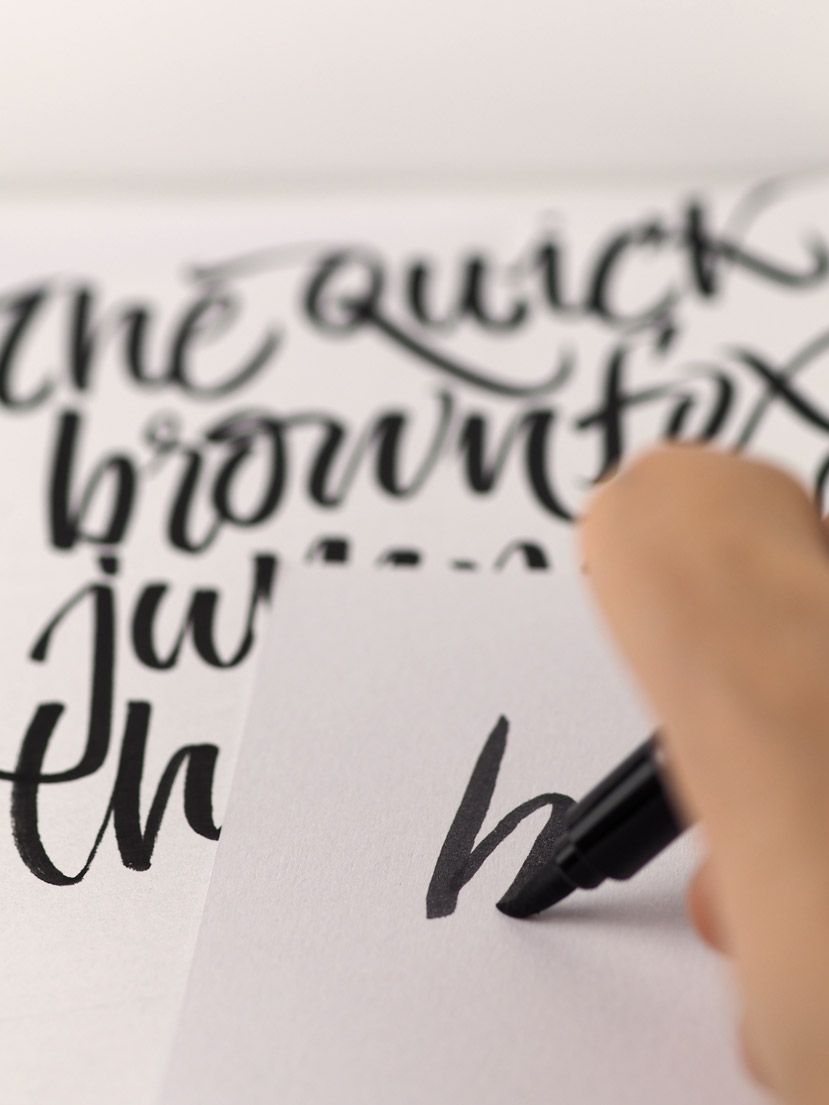 The quick
brown fox
ju
th
h